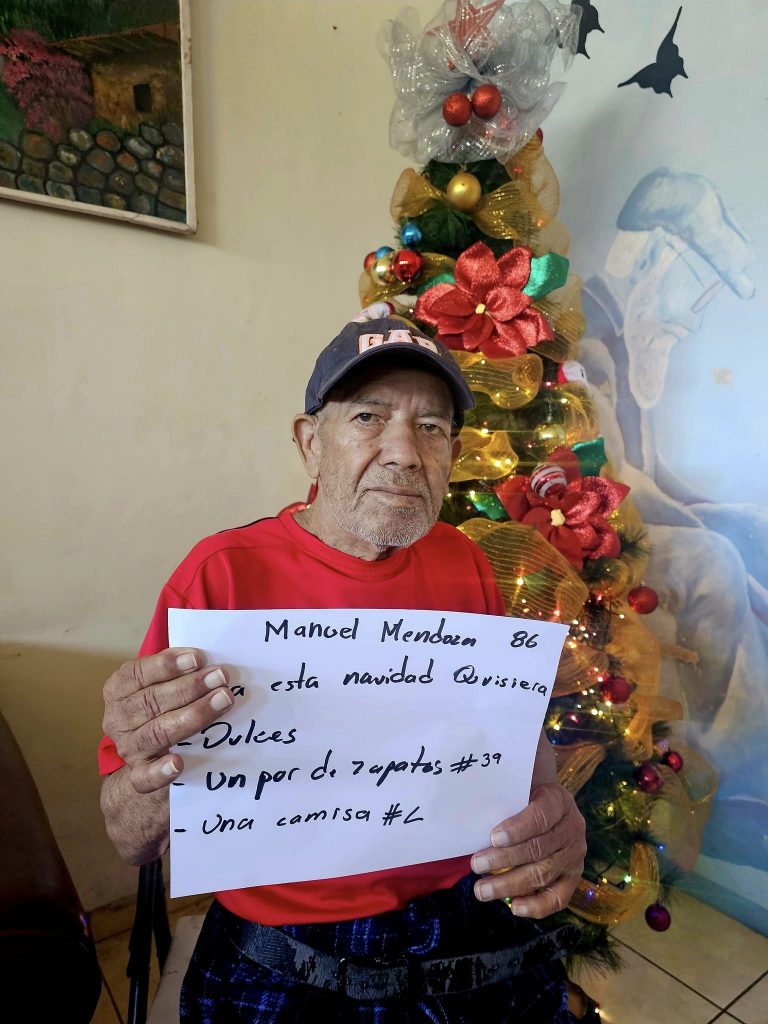 GAP
Manuel Mendoza 86
esta navidad Quisiera
- Dulces
- Un por de zapatos #39
- Una camisa #L